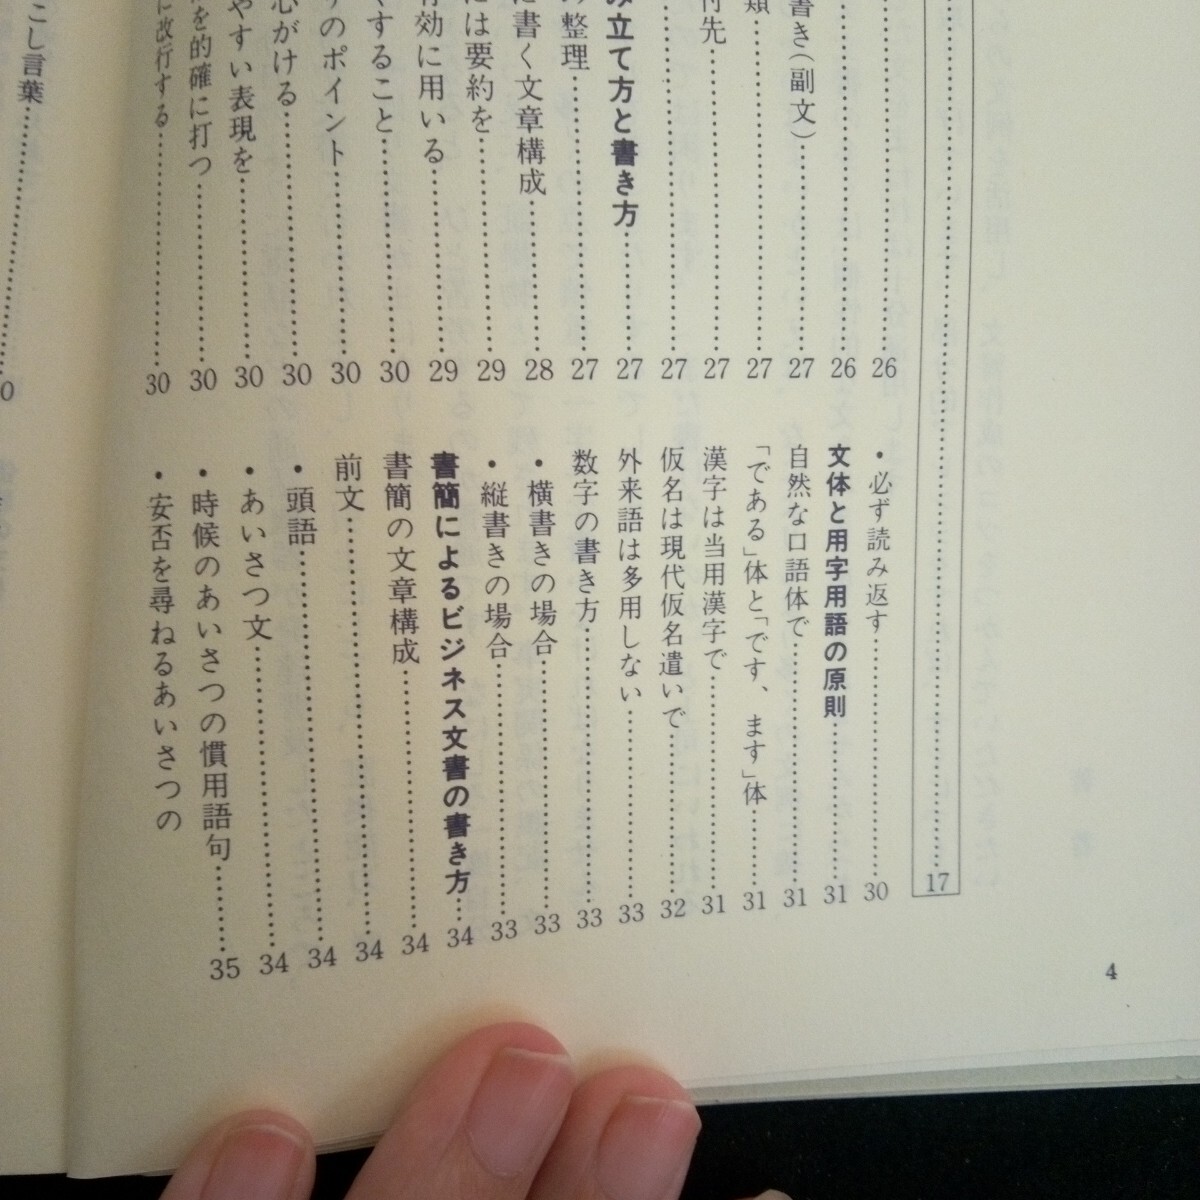 17
26
書き(副文)
26
27
類
27
付先
27
27
み立て方と書き方
27
の整理
27
に書く文章構成
28
には要約を
29
有効に用いる
29
やすること
30
りのポイント
30
心がける
30
やすい表現を
30
点を的確に打つ
30
に改行する
30
・必ず読み返す
30
文体と用字用語の原則
31
自然な口語体で
31
「である」体と「です、ます」体
31
漢字は当用漢字で
31
仮名は現代仮名遣いで
32
外来語は多用しない
33
数字の書き方
33
・横書きの場合
33
・縦書きの場合
33
書簡によるビジネス文書の書き方
34
書簡の文章構成
34
前文
34
・頭語
34
・あいさつ文
34
・時候のあいさつの慣用語句
35
・安否を尋ねるあいさつの
こし言葉
4